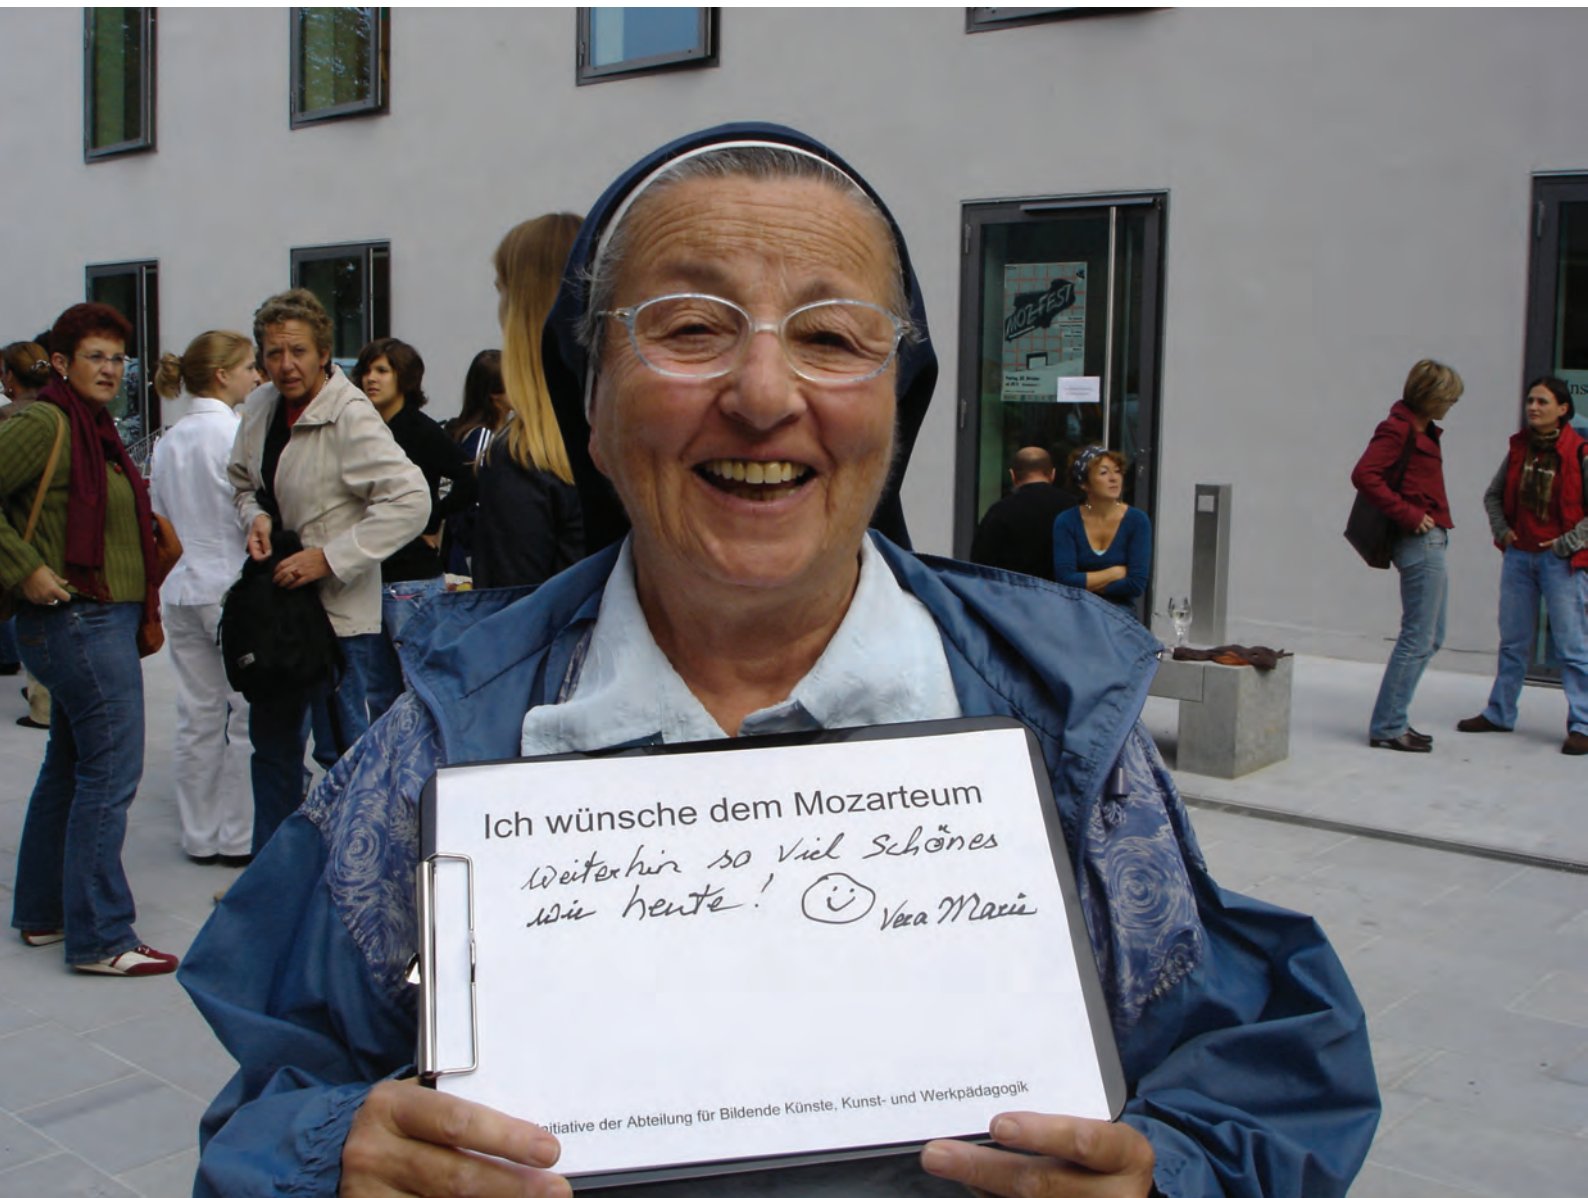 MOZ-FEST
Ins
Ich wünsche dem Mozarteum
weiterhin so viel Schönes
wie heute! Vera Maria
nitiative der Abteilung für Bildende Künste, Kunst- und Werkpädagogik